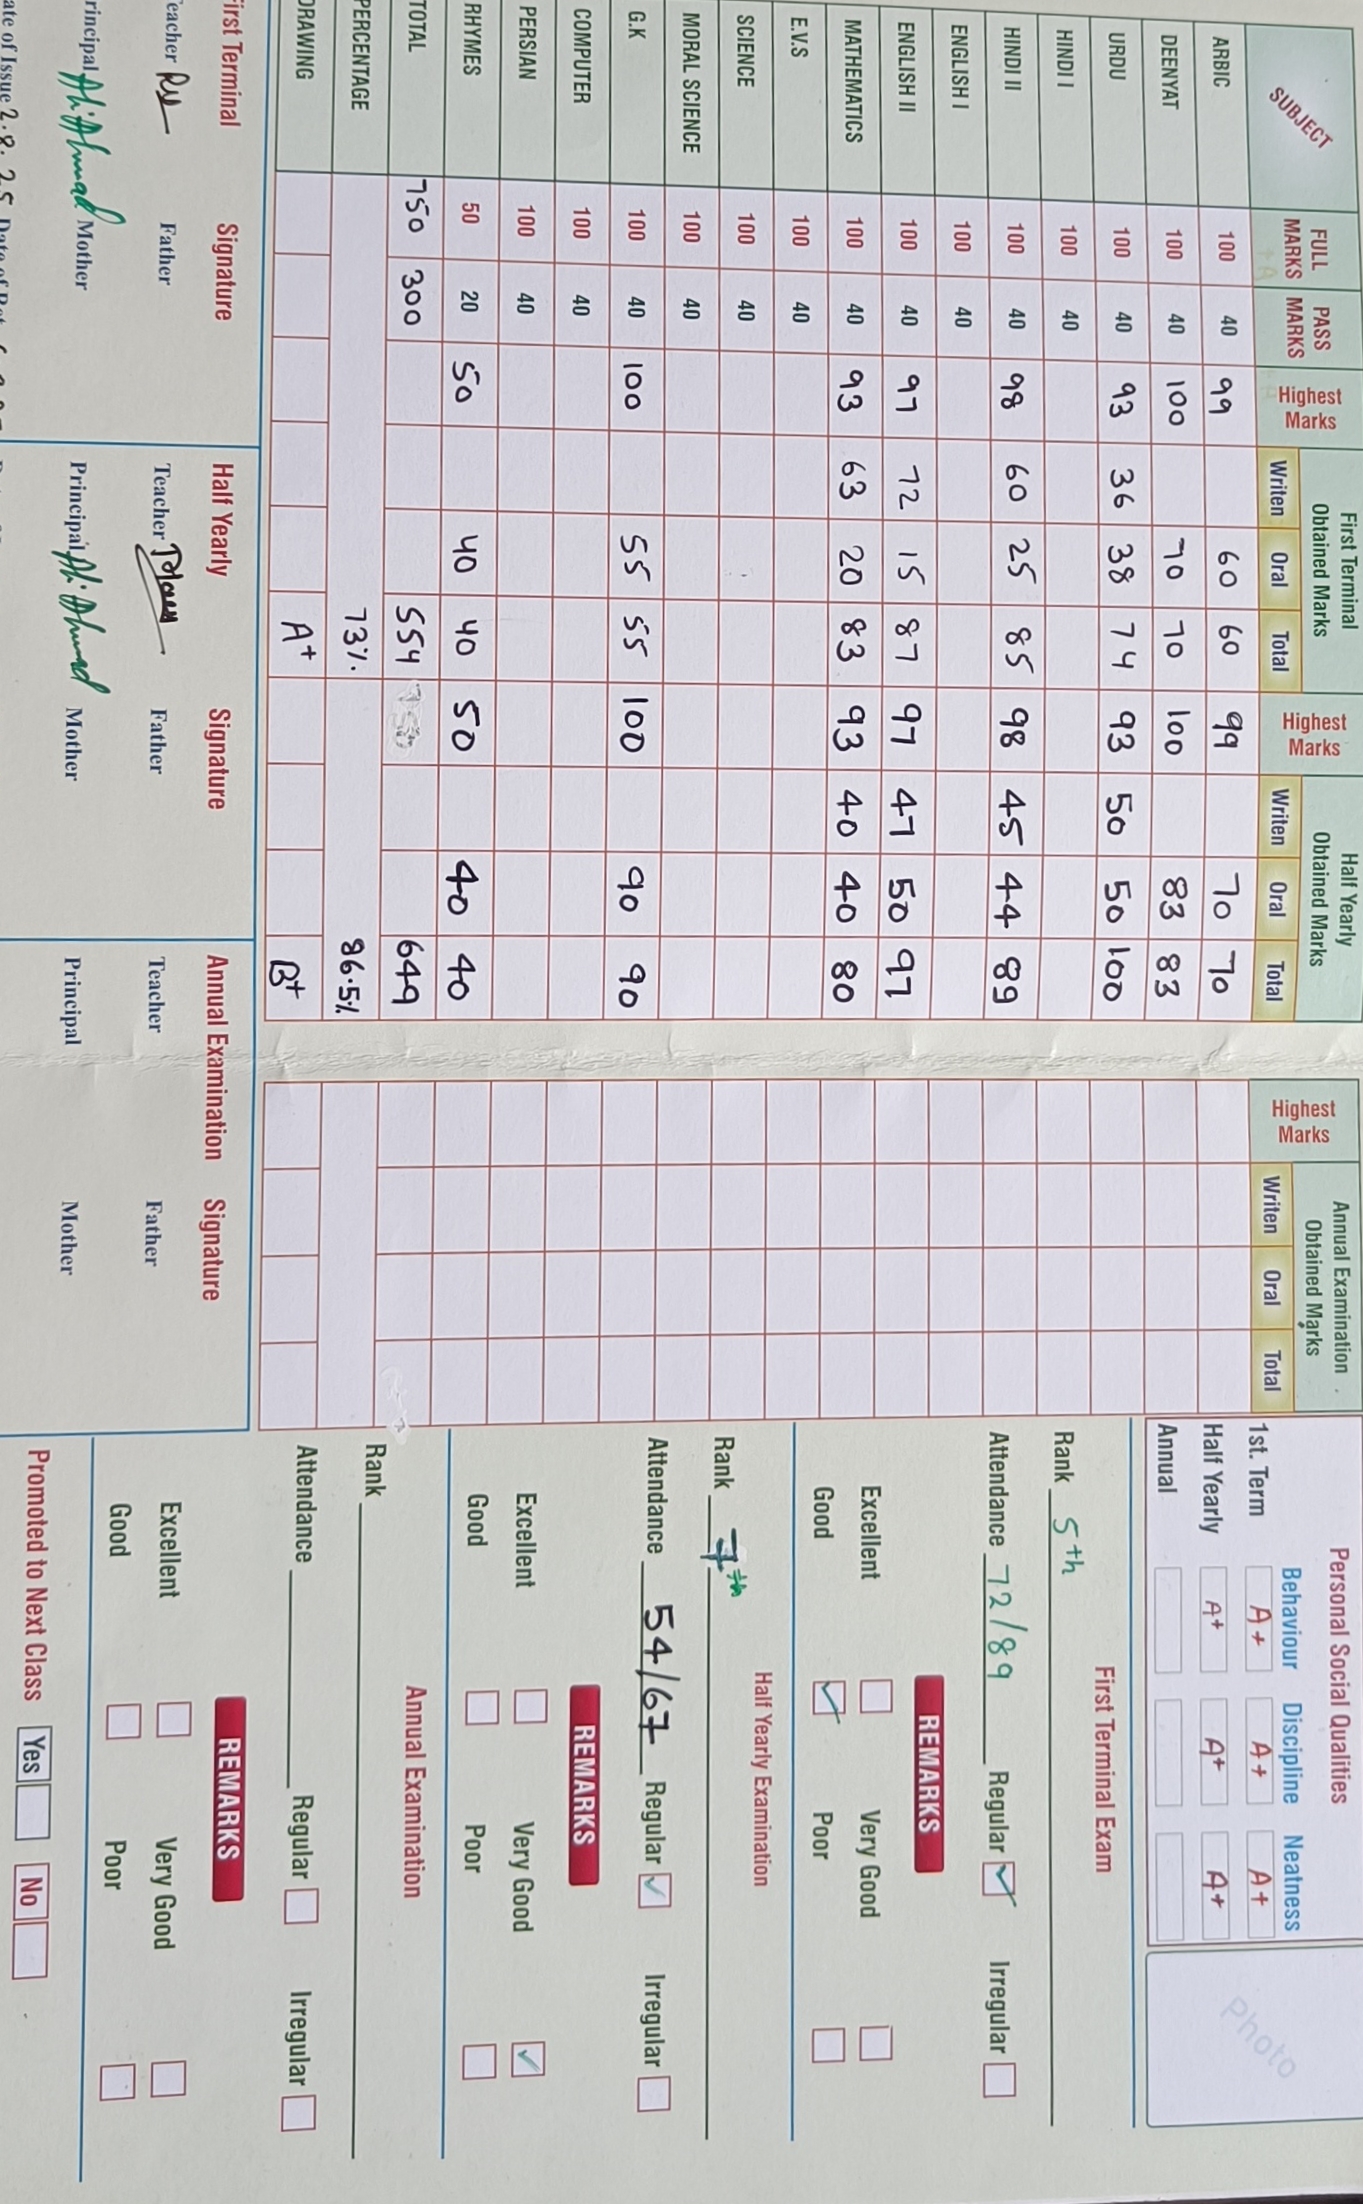 SUBJECT FULL MARKS PASS MARKS Highest Marks First Terminal Obtained Marks Highest Marks Half Yearly Obtained Marks Highest Marks Annual Examination Obtained Marks
Writen Oral Total Writen Oral Total Writen Oral Total
ARBIC 100 40 99 60 60 99 70 70
DEENYAT 100 40 100 70 70 100 83 83
URDU 100 40 93 36 38 74 93 50 50 100
HINDI I 100 40
HINDI II 100 40 98 60 25 85 98 45 44 89
ENGLISH I 100 40
ENGLISH II 100 40 97 72 15 87 97 47 50 97
MATHEMATICS 100 40 93 63 20 83 93 40 40 80
E.V.S 100 40
SCIENCE 100 40
MORAL SCIENCE 100 40
G.K 100 40 100 55 55 100 90 90
COMPUTER 100 40
PERSIAN 100 40
RHYMES 50 20 50 40 40 50 40 40
TOTAL 750 300 554 649
PERCENTAGE 73%. 86.5%
DRAWING A+ B+
First Terminal Signature Half Yearly Signature Annual Examination Signature
Teacher Father Teacher Father Teacher Father
Principal Ali Ahmad Mother Principal Ali Ahmad Mother Principal Mother
ate of Issue 2.8.25
Personal Social Qualities
Behaviour Discipline Neatness
1st. Term A+ A+ A+
Half Yearly A+ A+ A+
Annual
Photo
First Terminal Exam
Rank 5th
Attendance 72/89 Regular Irregular
REMARKS
Excellent Very Good
Good Poor
Half Yearly Examination
Rank 7th
Attendance 54/67 Regular Irregular
REMARKS
Excellent Very Good
Good Poor
Annual Examination
Rank
Attendance Regular Irregular
REMARKS
Excellent Very Good
Good Poor
Promoted to Next Class Yes No